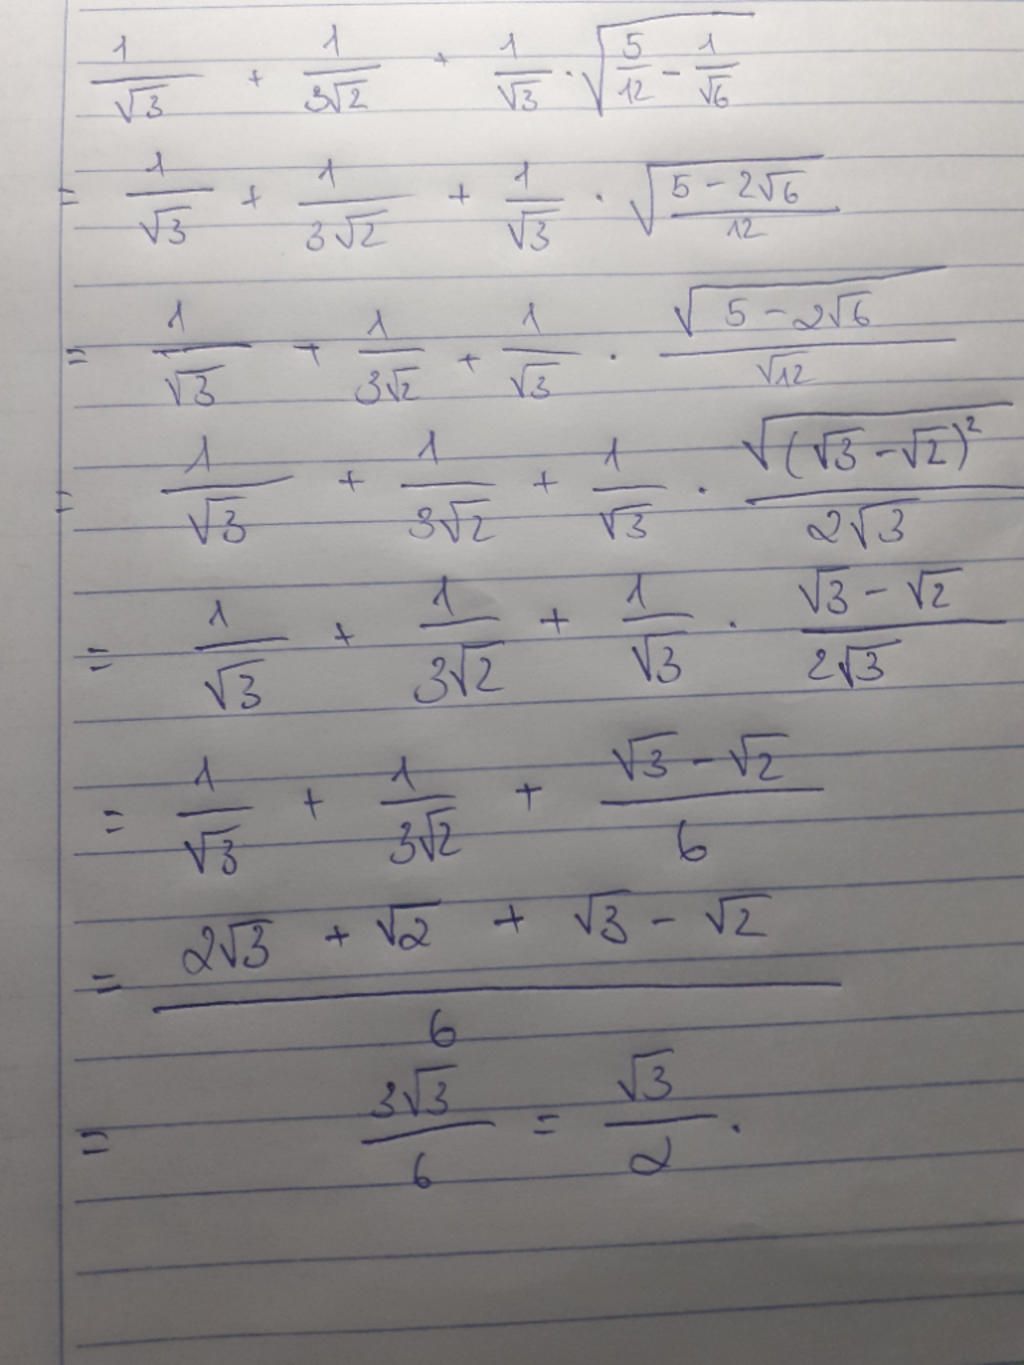 1/√3 + 1/3√2 + 1/√3 · √(5/12 − 1/√6)
= 1/√3 + 1/3√2 + 1/√3 · √((5 − 2√6)/12)
= 1/√3 + 1/3√2 + 1/√3 · √(5 − 2√6)/√12
= 1/√3 + 1/3√2 + 1/√3 · √((√3 − √2)²)/2√3
= 1/√3 + 1/3√2 + 1/√3 · (√3 − √2)/2√3
= 1/√3 + 1/3√2 + (√3 − √2)/6
= (2√3 + √2 + √3 − √2)/6
= 3√3/6 = √3/2 .